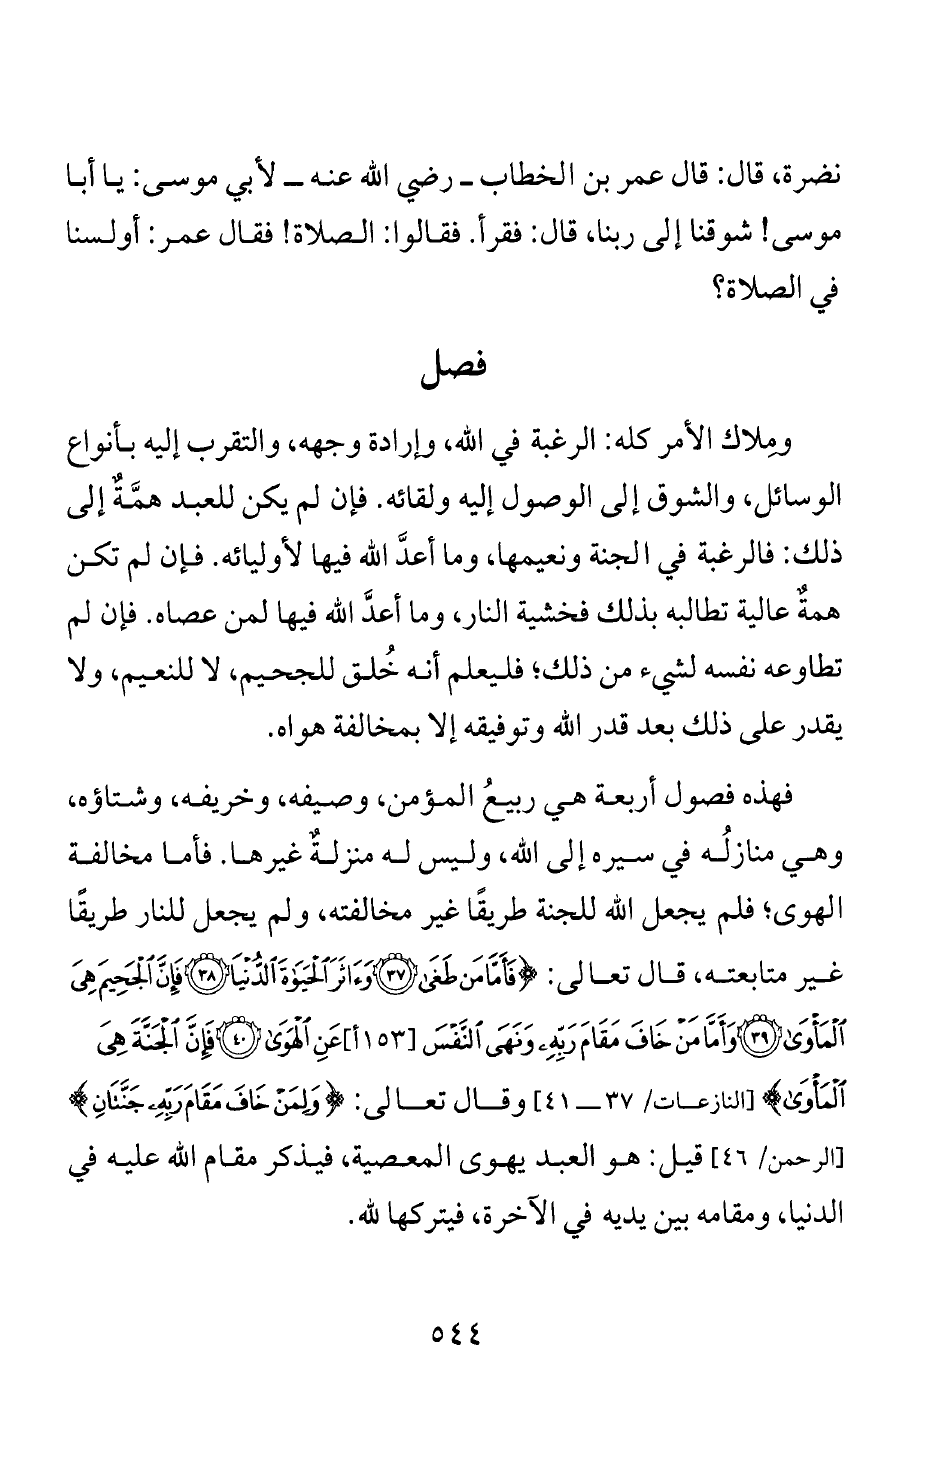 نضرة، قال: قال عمر بن الخطاب ـ رضي الله عنه ـ لأبي موسى: يا أبا
موسى! شوقنا إلى ربنا، قال: فقرأ. فقالوا: الصلاة! فقال عمر: أولسنا
في الصلاة؟
فصل
ومِلاك الأمر كله: الرغبة في الله، وإرادة وجهه، والتقرب إليه بأنواع
الوسائل، والشوق إلى الوصول إليه ولقائه. فإن لم يكن للعبد همَّةٌ إلى
ذلك: فالرغبة في الجنة ونعيمها، وما أعدَّ الله فيها لأوليائه. فإن لم تكن
همةٌ عالية تطالبه بذلك فخشية النار، وما أعدَّ الله فيها لمن عصاه. فإن لم
تطاوعه نفسه لشيء من ذلك؛ فليعلم أنه خُلق للجحيم، لا للنعيم، ولا
يقدر على ذلك بعد قدر الله وتوفيقه إلا بمخالفة هواه.
فهذه فصول أربعة هي ربيعُ المؤمن، وصيفه، وخريفه، وشتاؤه،
وهي منازلُه في سيره إلى الله، وليس له منزلةٌ غيرها. فأما مخالفة
الهوى؛ فلم يجعل الله للجنة طريقًا غير مخالفته، ولم يجعل للنار طريقًا
غير متابعته، قال تعالى: ﴿فَأَمَّا مَن طَغَىٰ ٣٧ وَءَاثَرَ ٱلْحَيَوٰةَ ٱلدُّنْيَا ٣٨ فَإِنَّ ٱلْجَحِيمَ هِىَ
ٱلْمَأْوَىٰ ٣٩ وَأَمَّا مَنْ خَافَ مَقَامَ رَبِّهِۦ وَنَهَى ٱلنَّفْسَ [١٥٣أ] عَنِ ٱلْهَوَىٰ ٤٠ فَإِنَّ ٱلْجَنَّةَ هِىَ
ٱلْمَأْوَىٰ﴾ [النازعات/ ٣٧ ـ ٤١] وقال تعالى: ﴿وَلِمَنْ خَافَ مَقَامَ رَبِّهِۦ جَنَّتَانِ﴾
[الرحمن/ ٤٦] قيل: هو العبد يهوى المعصية، فيذكر مقام الله عليه في
الدنيا، ومقامه بين يديه في الآخرة، فيتركها لله.
٥٤٤